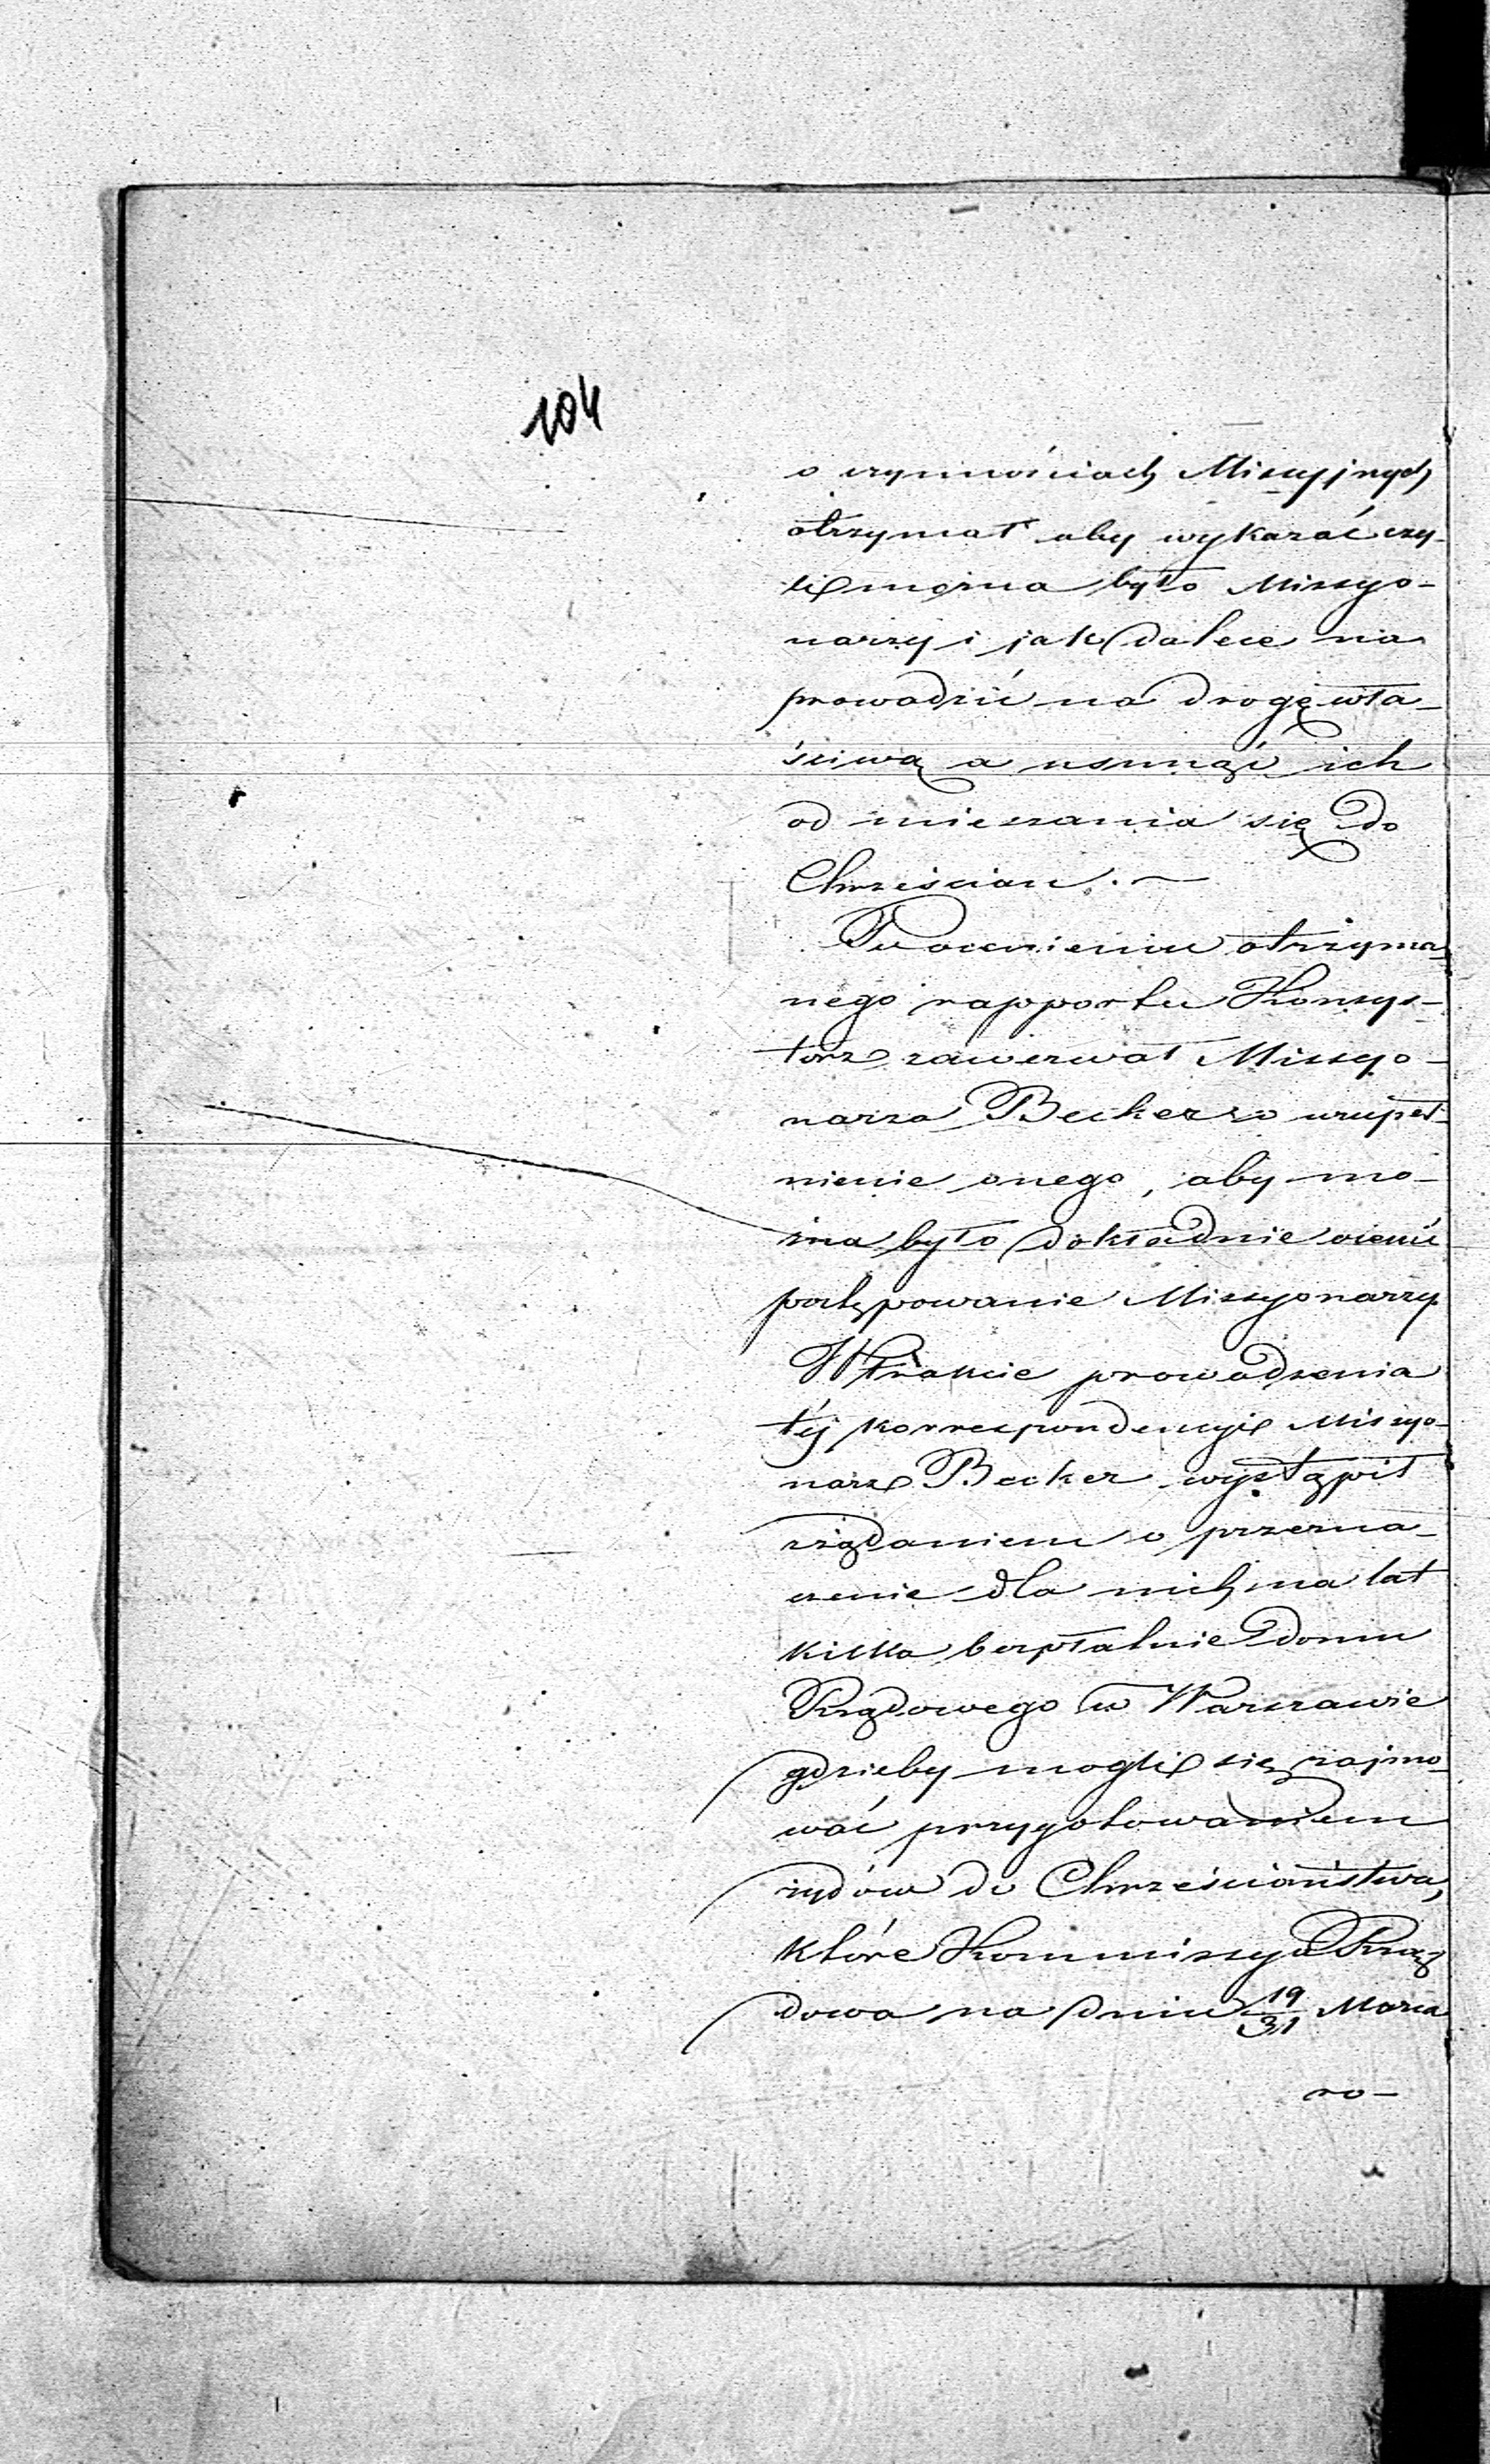 104
o czynnościach Missyjnych
otrzymał aby wykazać czy-
li można było Missyo-
narzy i jak dalece na
prowadzić na drogę wła-
ściwą a usunąć ich
od mieszania się do
Chrześcian. —
Po ocenieniu otrzyma-
nego rapportu Konsys-
torz zawezwał Missyo-
narza Becker o uzupeł-
nienie onego, aby mo-
żna było dokładnie ocenić
postępowanie Missyonarzy.
W trakcie prowadzenia
téj korrespondencyi Missyo-
narz Becker wystąpił
z żądaniem o przezna-
czenie dla nich na lat
kilka bezpłatnie domu
Rządowego w Warszawie
gdzieby mogli się zajmo-
wać przygotowaniem
żydów do Chrześciaństwa,
które Kommissya Rzą-
dowa na dniu 19/31 Marca
ro-